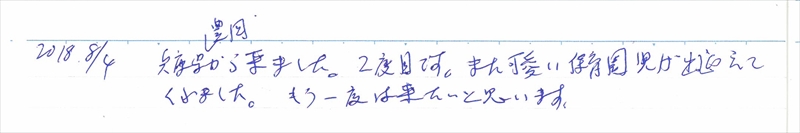 豊岡
2018.8/4 兵庫県から来ました。2度目です。また可愛い保育園児が出迎えて
くれました。もう一度は来たいと思います。